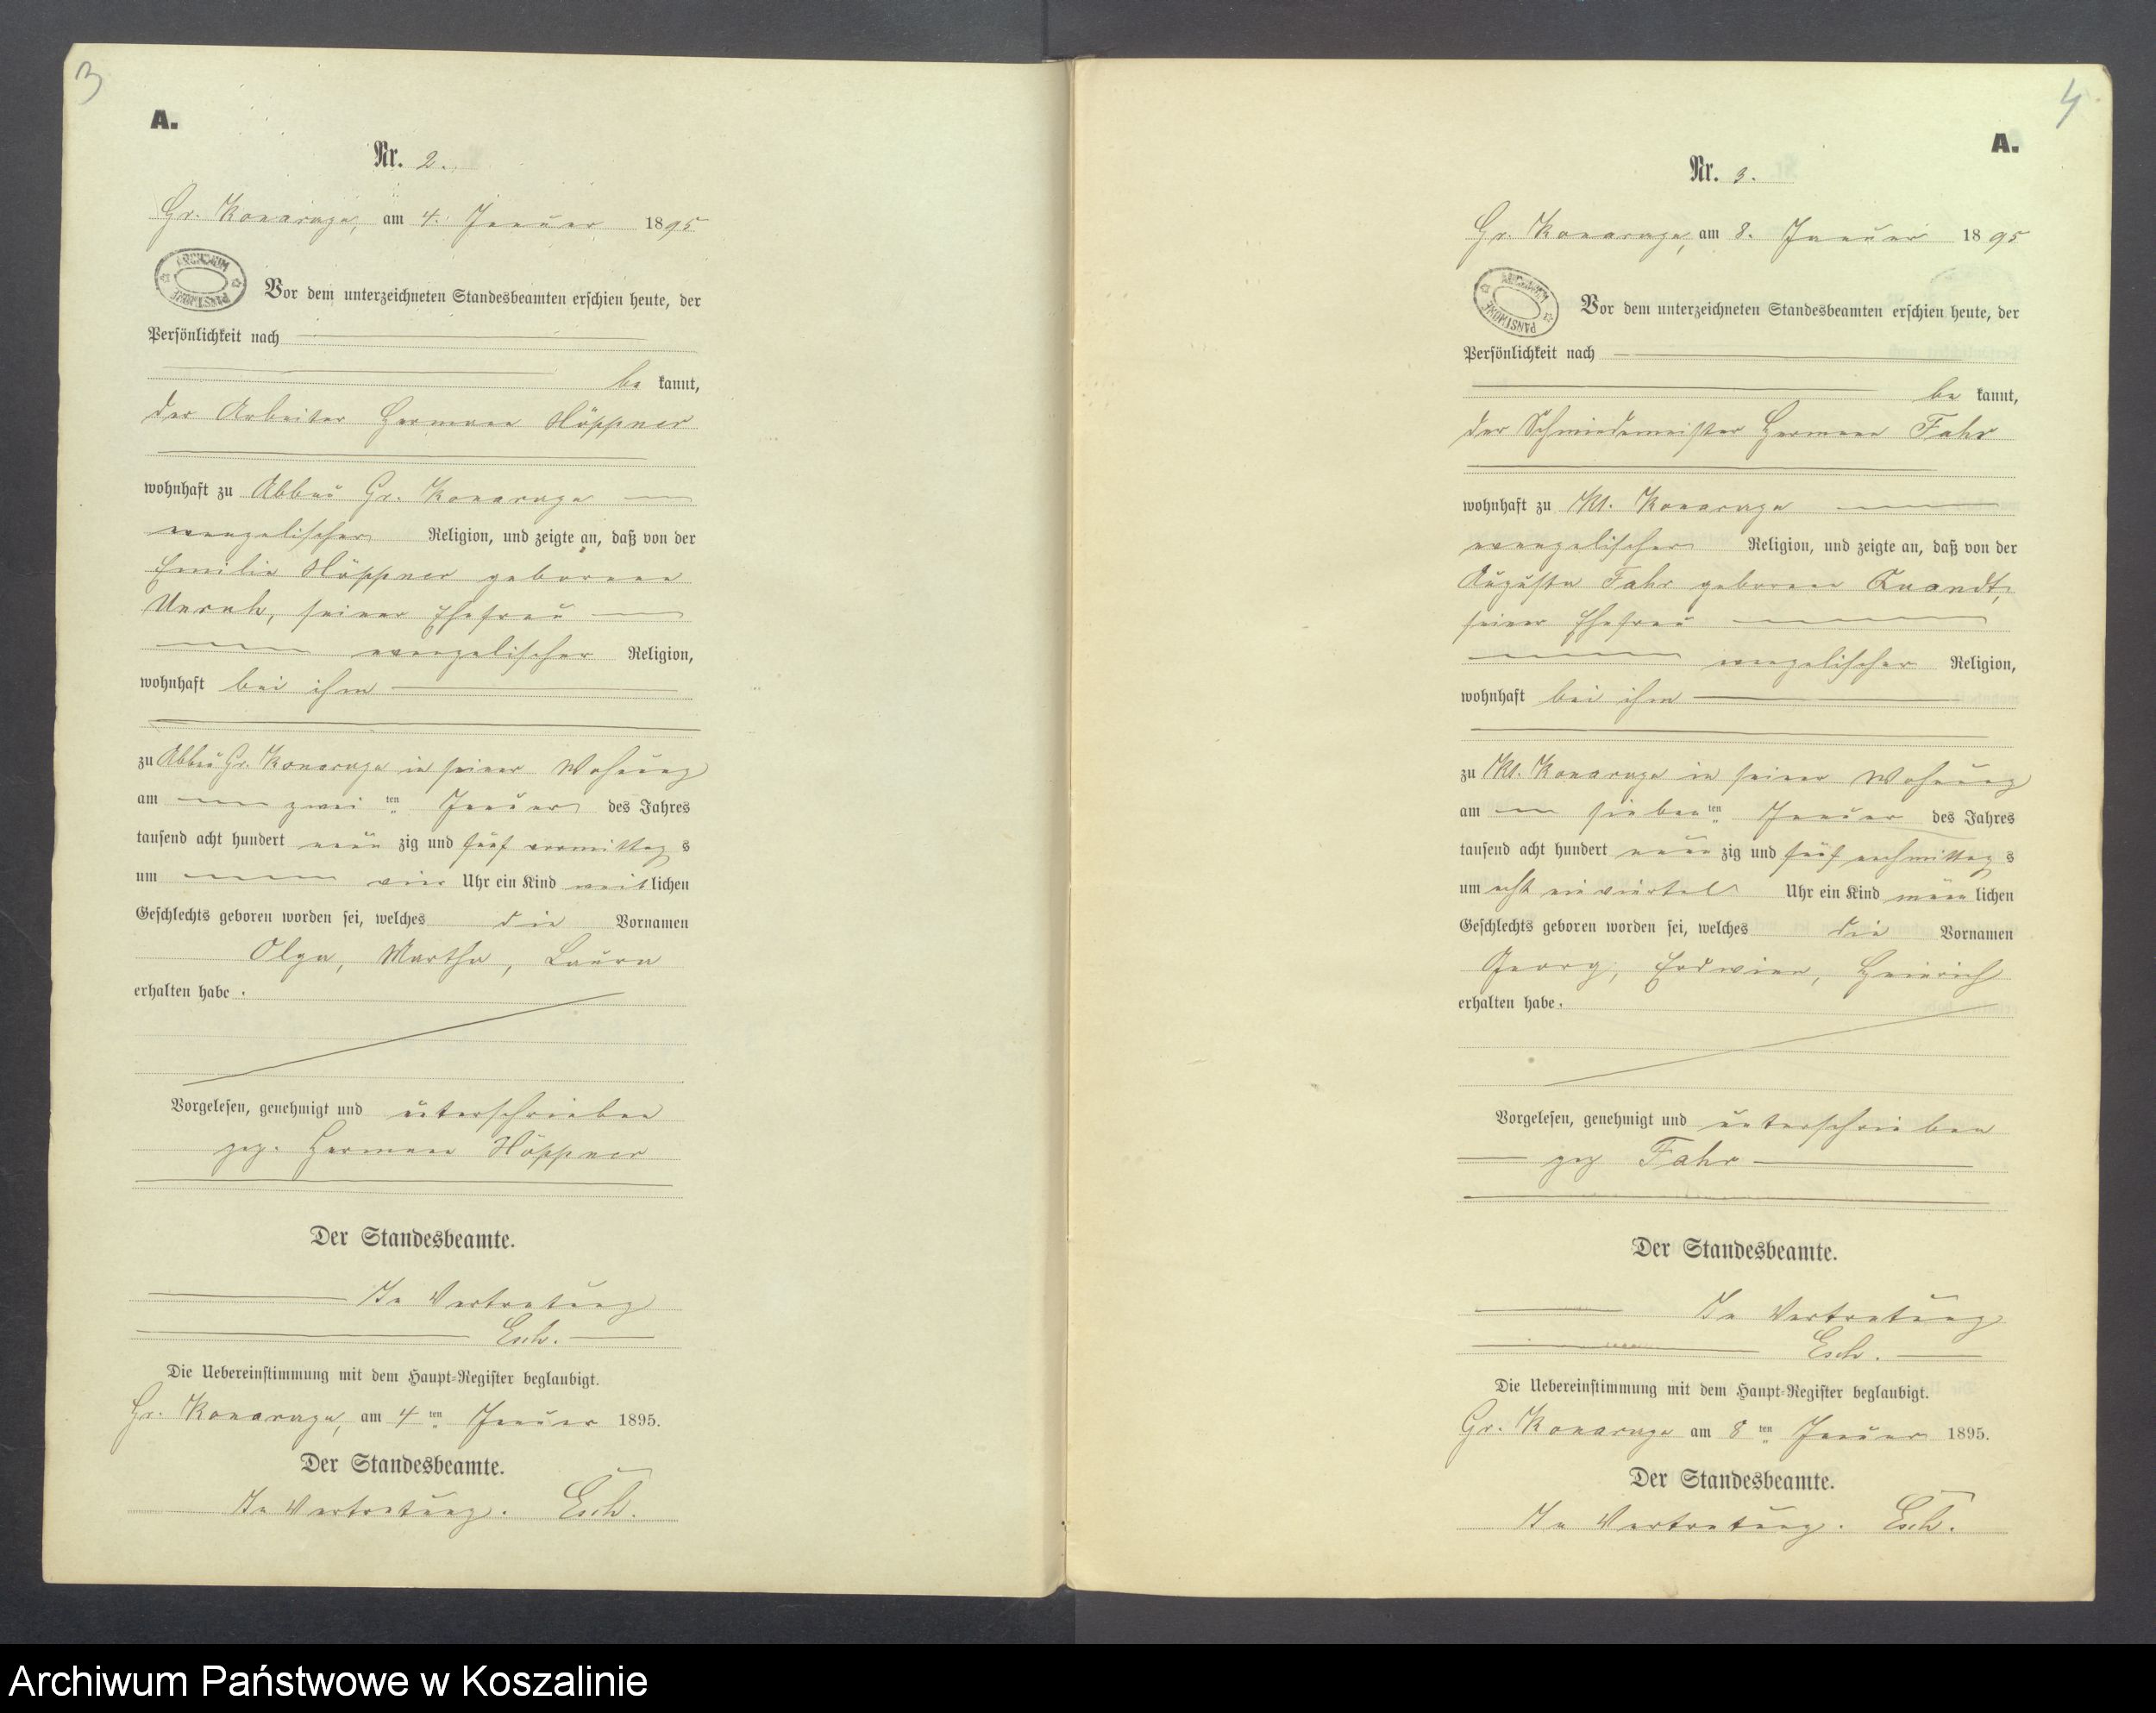 3
A.
Nr. 2.
Gr. Konarzyn, am 4. Januar 1895
ARCHIWUM PAŃSTWOWE
Vor dem unterzeichneten Standesbeamten erschien heute, der
Persönlichkeit nach
be kannt,
der Arbeiter Hermann Höppner
wohnhaft zu Abbau Gr. Konarzyn
evangelischer Religion, und zeigte an, daß von der
Emilie Höppner geborenen
Unruh, seiner Ehefrau
evangelischer Religion,
wohnhaft bei ihm
zu Abbau Gr. Konarzyn in seiner Wohnung
am zwei ten Januar des Jahres
tausend acht hundert neun zig und fünf vormittag s
um vier Uhr ein Kind weib lichen
Geschlechts geboren worden sei, welches die Vornamen
Olga, Martha, Laura
erhalten habe.
Vorgelesen, genehmigt und unterschrieben
gez. Hermann Höppner
Der Standesbeamte.
In Vertretung
Esch.
Die Uebereinstimmung mit dem Haupt-Register beglaubigt.
Gr. Konarzyn, am 4 ten Januar 1895.
Der Standesbeamte.
In Vertretung. Esch.
4
A.
Nr. 3.
Gr. Konarzyn, am 8. Januar 1895
ARCHIWUM PAŃSTWOWE
Vor dem unterzeichneten Standesbeamten erschien heute, der
Persönlichkeit nach
be kannt,
der Schmiedemeister Hermann Fahr
wohnhaft zu Kl. Konarzyn
evangelischer Religion, und zeigte an, daß von der
Auguste Fahr geborenen Quandt,
seiner Ehefrau
evangelischer Religion,
wohnhaft bei ihm
zu Kl. Konarzyn in seiner Wohnung
am sieben ten Januar des Jahres
tausend acht hundert neun zig und fünf nachmittag s
um acht einviertel Uhr ein Kind männ lichen
Geschlechts geboren worden sei, welches die Vornamen
Georg, Erdwinn, Heinrich
erhalten habe.
Vorgelesen, genehmigt und unterschrieben
gez Fahr
Der Standesbeamte.
In Vertretung
Esch.
Die Uebereinstimmung mit dem Haupt-Register beglaubigt.
Gr. Konarzyn am 8 ten Januar 1895.
Der Standesbeamte.
In Vertretung. Esch.
Archiwum Państwowe w Koszalinie